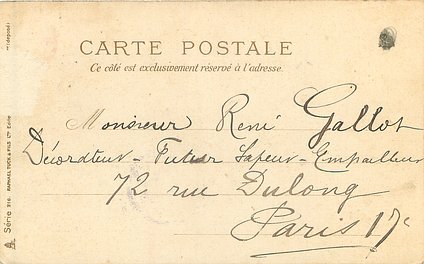 CARTE POSTALE
Ce côté est exclusivement réservé à l'adresse.
Monsieur René Gallot
Décordteur - Futur Sapeur - Empailleur
72 rue Dulong
Paris 17e
Série 216. RAPHAEL TUCK & FILS
(déposé)